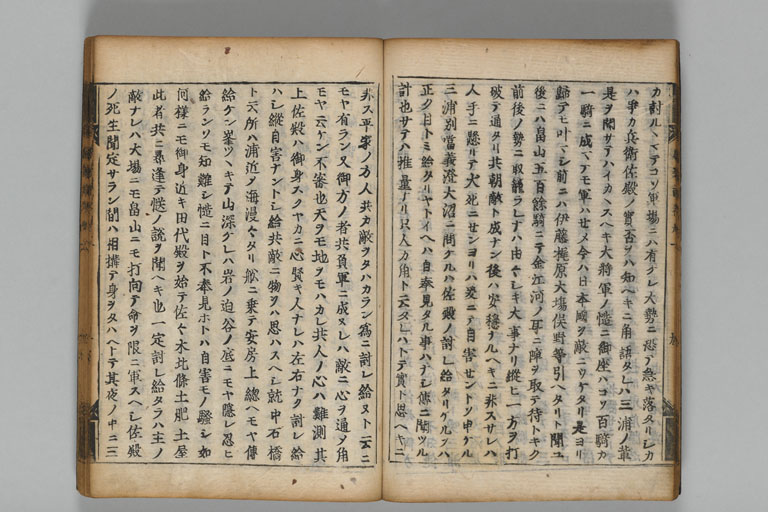 カ討ルヽマテコソ軍場ニハ有グレ大勢ニ恐テ急キ落タリシカ
ハ争カ兵衛佐殿ノ實否ヲハ知ヘキニ角語タレハ三浦ノ輩
是ヲ聞サテハイカヽスヘキ大将軍ノ慥ニ御座ハコソ百騎カ
一騎ニ成マテモ軍ハせメ今ハ日本國ヲ敵ニウケタリ是ヨリ
歸テモ叶マシ前ニハ伊藤梶原大塲俣野等引ヘタリト聞ユ
後ニハ畠山五百餘騎ニテ金江河ノ耳ニ陣ヲ取テ待トキク
前後ノ勢ニ取籠ラレナハ由々シキ大事ナリ縦ヒ一方ヲ打
破テ通タリ共朝敵ト成ナン後ハ安穏ナルヘキニ非スサレハ
人手ニ懸リテ犬死ニセンヨリハ爰ニテ自害せントソ申ケル
三浦別當義澄大沼ニ問ケルハ佐殿ノ討レ給タリケルヲハ
正ク目トミ給タリヤトイヘハ自奉見タル事ハナシ傳ニ聞ツル
計也サテハ推量ナリ只人カ角ト云タレハトテ實ト思ヘキニ
非ス平家ノ方人共カ敵ヲタハカラン為ニ討レ給ヌト云ニ
モヤ有ラン又御方ノ者共負軍ニ成ヌレハ敵ニ心ヲ通ヲ角
モヤ云ケン不審也天ヲモ地ヲモハカレ共人ノ心ハ難測其
上佐殿ハ御身スクヤカニ心賢キ人ナレハ左右ナク討レ給
ハシ縦自害ナントシ給共敵ニ物ヲハ思ハスヘシ就中石橋
ト云所ハ浦近ク海漫々タリ舩ニ乗テ安房上總ヘモヤ傳
給ケン峯ツヽキテ山深ケレハ岩ノ迫谷ノ底ニモヤ隠レ忍ヒ
給ランソモ知難シ慥ニ目ト不奉見ホトハ自害モノ騒シ如
何樣ニモ御身近キ田代殿ヲ始テ佐々木北條土肥土屋
此者共ニ尋逢テ慥ノ説ヲ聞ヘキ也一定討レ給タラハ主ノ
敵ナレハ大場ニモ畠山ニモ打向テ命ヲ限ニ軍スヘシ佐殿
ノ死生聞定サラン間ハ相構テ身ヲタハヘトテ其夜ノ中ニ三